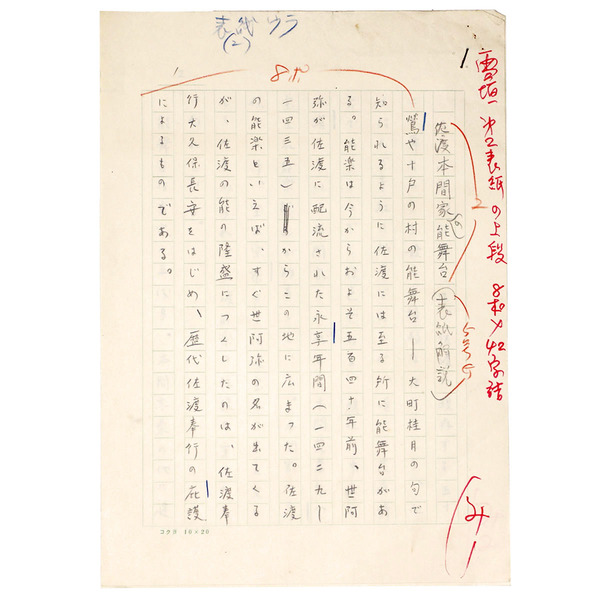 雪垣 オ2表紙の上段 8ポ×42字詰
表紙ゆう
(2)
8ポ
佐渡本間家の能舞台(表紙解説)
2
鶯や十戸の村の能舞台―大町桂月の句で
知られるように佐渡には至る所に能舞台があ
る。能楽は今からおよそ五百四十年前、世阿
弥が佐渡に配流された永享年間(一四二九―
一四三五)からこの地に広まった。佐渡
の能楽といえば、すぐ世阿弥の名が出てくる
が、佐渡の能の隆盛につくしたのは、佐渡奉
行大久保長安をはじめ、歴代佐渡奉行の庇護
によるものである。
コクヨ 10×20